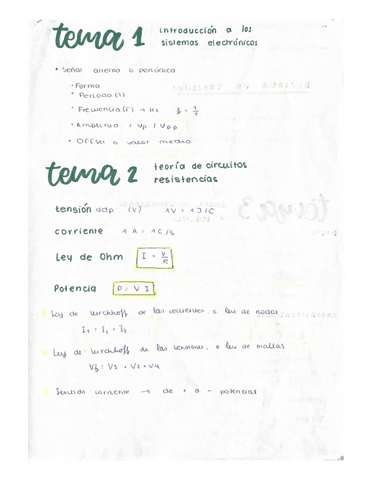 tema 1 introducción a los
sistemas electrónicos
• Señal alterna o periódica
• Forma
• Periodo (T)
• Frecuencia (f) → Hz f = 1/T
• Amplitud / Vp / Vpp
• Offset o valor medio
tema 2 teoría de circuitos
resistencias
tensión o ddp (V) 1V = 1J/C
corriente 1 A = 1C/s
Ley de Ohm I = V/R
Potencia P = V I
Ley de Kirchhoff de las corrientes, o ley de nodos
I1 = I2 + I3
Ley de Kirchhoff de las tensiones, o ley de mallas
Vg = V1 + V2 + V4
Sentido corriente → de + a - potencial